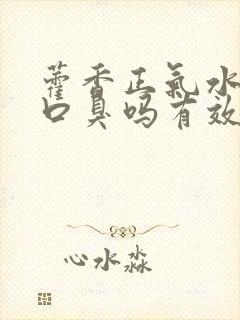 藿香正气水
口臭吗有效
心水淼